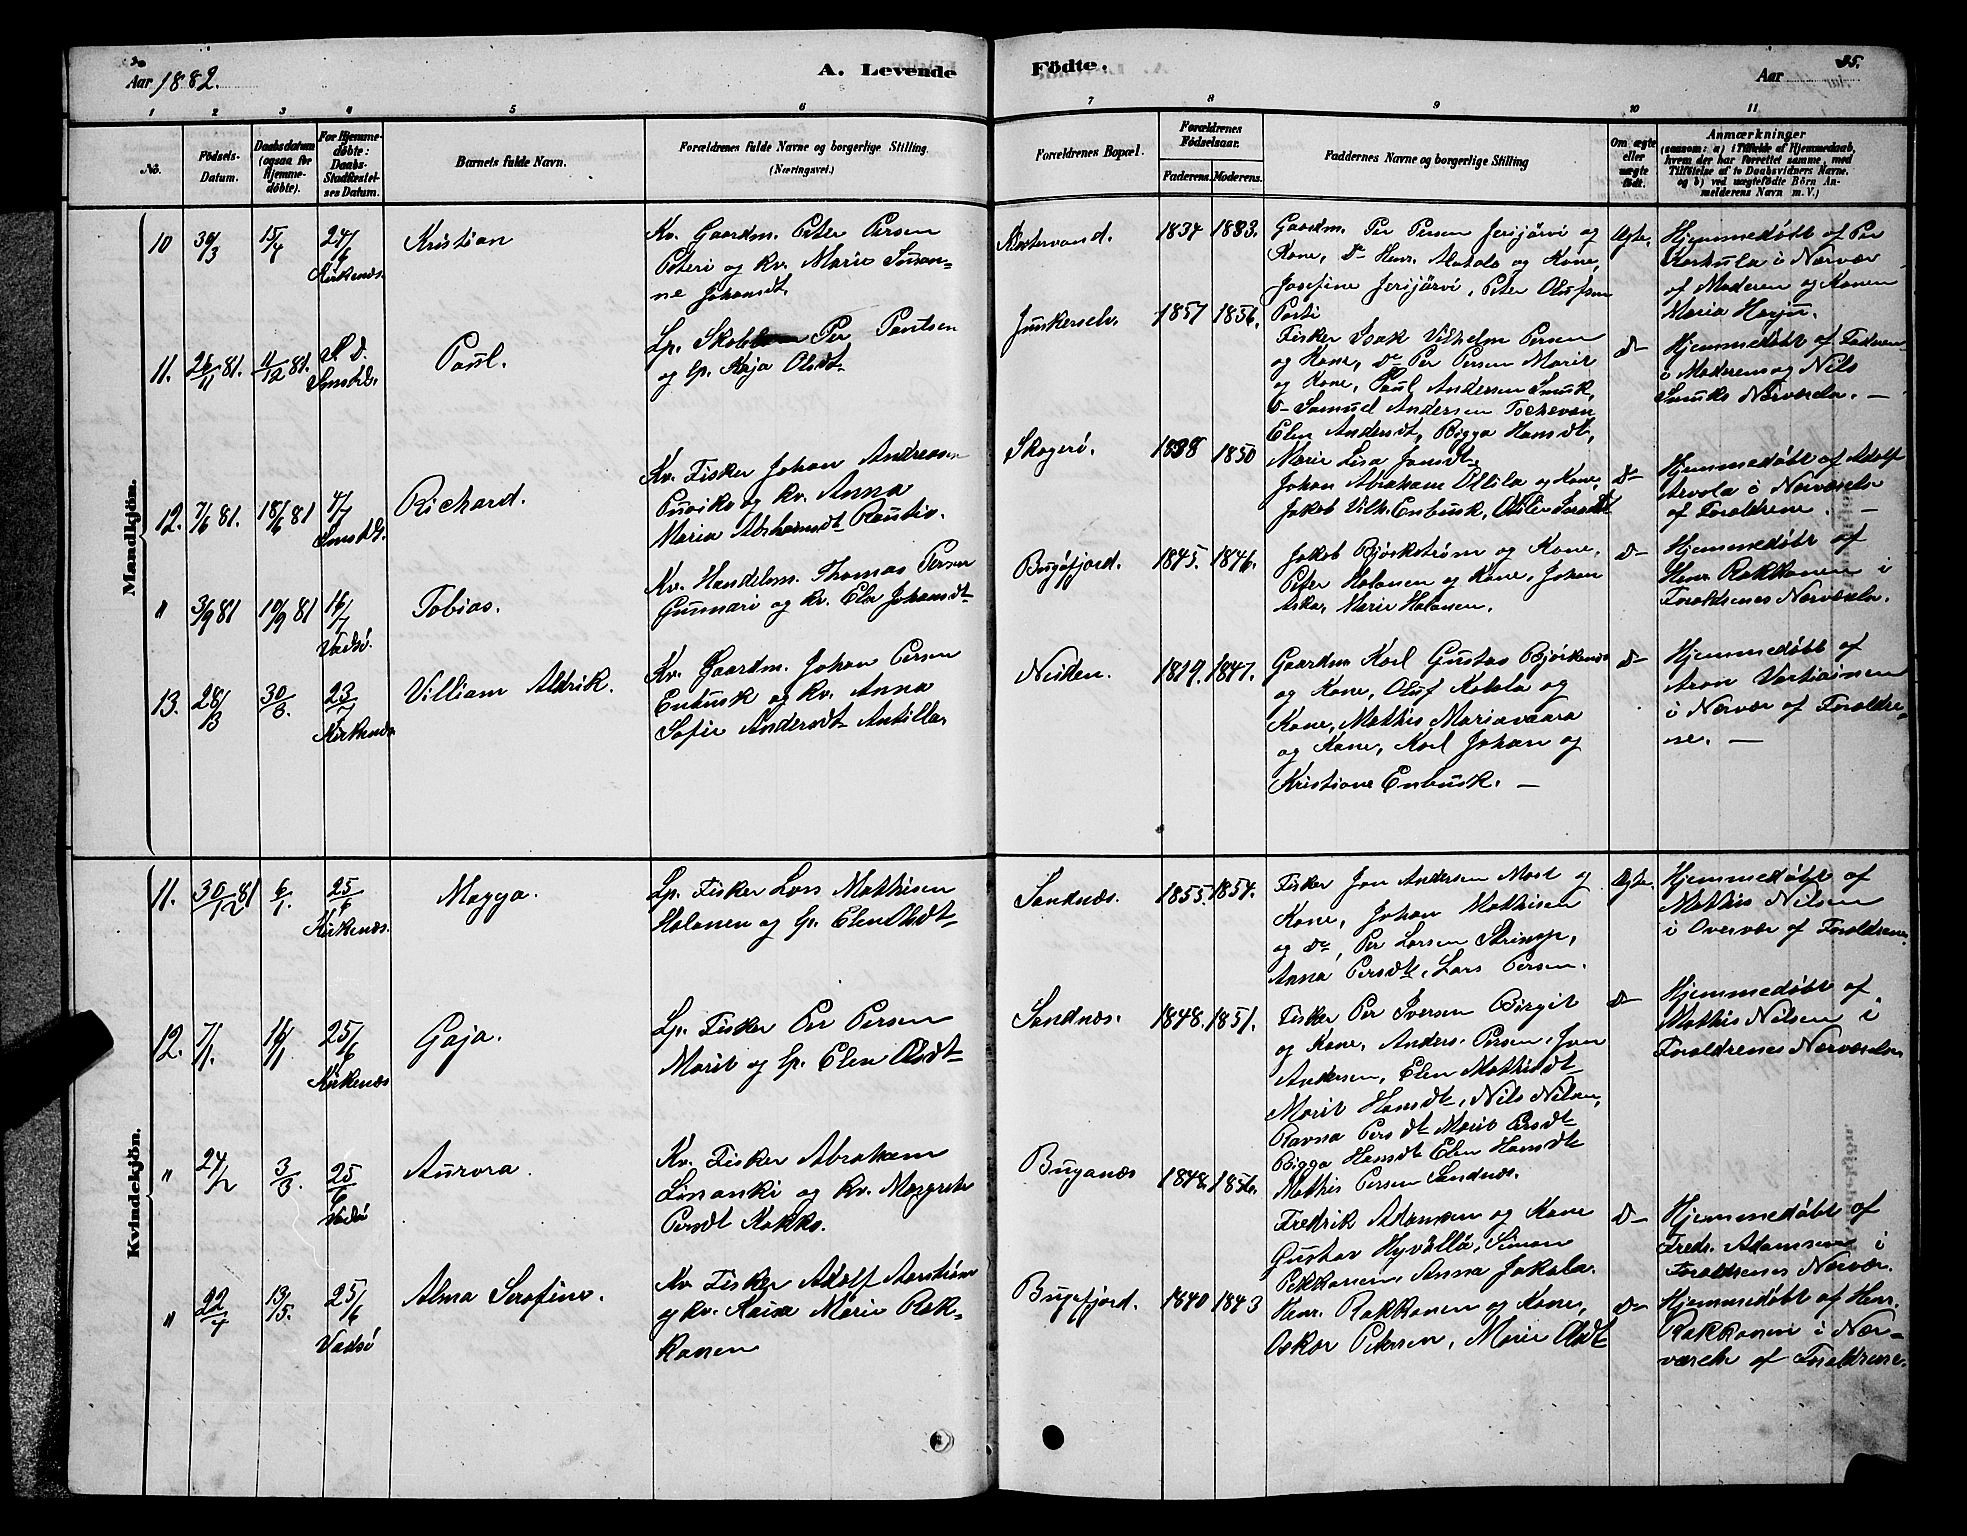 Aar 1882.
A. Levende
Födte.
Aar
95.
1 2 3 4 5 6 7 8 9 10 11
No.
Födsels-
Datum.
Daabsdatum
(ogsaa for
Hjemme-
döbte).
For Hjemme-
döbte:
Daabs-
Stadfæstel-
ses Datum.
Barnets fulde Navn.
Forældrenes fulde Navne og borgerlige Stilling.
(Næringsvei.)
Forældrenes Bopæl.
Forældrenes
Födselsaar.
Faderens. Moderens.
Faddernes Navne og borgerlige Stilling
Om ægte
eller
uægte
födt.
Anmærkninger
(saasom: a) i Tilfælde af Hjemmedaab,
hvem der har forrettet samme, med
Tilföielse af to Daabsvidners Navne.
og b) ved uægtefödte Börn An-
melderens Navn m. V.)
Mandkjön.
10 30/3 15/4 24/6
Kirkenæs.
Kristian
Kv. Gaardm. Peter Persen
Peteri og Kv. Marie Susan-
ne Johansdt.
1834 1833.
Gaardm. Per Persen Jerijärvi og
Kone, Do Henr. Alatalo og Kone,
Josefine Jerijärvi, Peter Olufsen
Posti
Ægte.
Hjemmedöbt af Per
Karhula i Nærvær
af Moderen og Konen
Maria Harju.
11. 26/11 81. 4/12 81. S. D.
Paul.
Lp. Per Pavlsen
og Lp. Kaja Olsdt.
Junkerselv.
1857 1856.
Fisker Isak Vilhelm Persen
og Kone, Do Per Persen Marit
og Kone, Paul Andersen Smuk,
Do Samuel Andersen
Elen Andersdt, Bigga Hansdt,
Marie Lisa Jonsdt.
Do
Hjemmedöbt af Faderen
i Moderens og Nils
Smuks Nærværelse. —
12. 7/6 81. 18/6 81 4/7
Richard.
Kv. Fisker Johan Andreasen
og Kv. Anna
Maria Abrahamsdt Rautio.
Skogerö.
1838 1850
Johan Abraham Ollila og Kone,
Jakob Vilh. Enbusk,
Do
Hjemmedöbt af Adolf
Arvola i Nærværelse
af Forældrene. —
" 3/9 81 10/9 81 16/7
Vadsö.
Tobias.
Kv. Handelsm. Thomas Persen
Gunnari og Kv. Elsa Johansdt.
Bugöfjord.
1845. 1846.
Jakob Björkström og Kone,
Peter Halonen og Kone, Johan
Aska, Marie Halonen.
Do
Hjemmedöbt af
Henr. Rakkonen i
Forældrenes Nærværelse.
13. 28/3 30/3. 23/7
Kirkenæs.
Villiam Aldrik.
Kv. Gaardm. Johan Persen
Enbusk og Kv. Anna
Sofie Andersdt Antilla.
Neiden.
1819. 1847.
Gaardm Karl Gustav
og Kone, Oluf Kokola og
Kone, Mathis Mariavaara
og Kone, Karl Johan og
Kristiane Enbusk. —
Do
Hjemmedöbt af
Aron Vartiainen
i Nærvær af Forældre-
ne. —
Kvindekjön.
11. 30/12 81 6/1. 25/6
Kirkenæs.
Magga.
Lp. Fisker Lars Mathisen
Halonen og Lp. Elen Olsdt.
Sandnæs.
1855. 1854.
Fisker Jon Andersen Mast og
Kone, Johan Mathisen
og Do, Per Larsen
Anna Persdt, Lars Persen.
Ægte.
Hjemmedöbt af
Mathis Nilsen
i Overvær af Forældrene.
12. 7/1. 16/1 25/6
Kirkenæs
Gaja.
Lp. Fisker Per Persen
Marit og Lp. Elen Olsdt.
Sandnæs.
1848. 1851.
Fisker Per Iversen Birgit
og Kone, Anders Persen, Jon
Andersen, Elen Mathisdt
Marit Hansdt, Nils Nilsen,
Ravna Persdt Marit Persdt
Bigga Hansdt Elen Hansdt
Mathis Persen Sandnæs.
Do
Hjemmedöbt af
Mathis Nilsen i
Forældrenes Nærværelse
" 24/2 3/3 25/6
Vadsö
Aurora.
Kv. Fisker Abraham
Linanki og Kv. Margrete
Persdt Kokko.
Buganæs
1848. 1856.
Fredrik Adamsen og Kone
Gustav Hyvällä, Simon
Pekkonen, Anna Jakola.
Do
Hjemmedöbt af
Fredr. Adamsen i
Forældrenes Nærvær.
" 22/4 13/5. 25/6
Vadsö
Alma Serafine.
Kv. Fisker Adolf
og Kv. Kaisa Marie Rak-
konen
Bugefjord.
1840 1843
Henr. Rakkonen og Kone,
Oskar Petersen, Marie Olsdt
Do
Hjemmedöbt af Henr.
Rakkonen i Nær-
værelse af Forældrene.